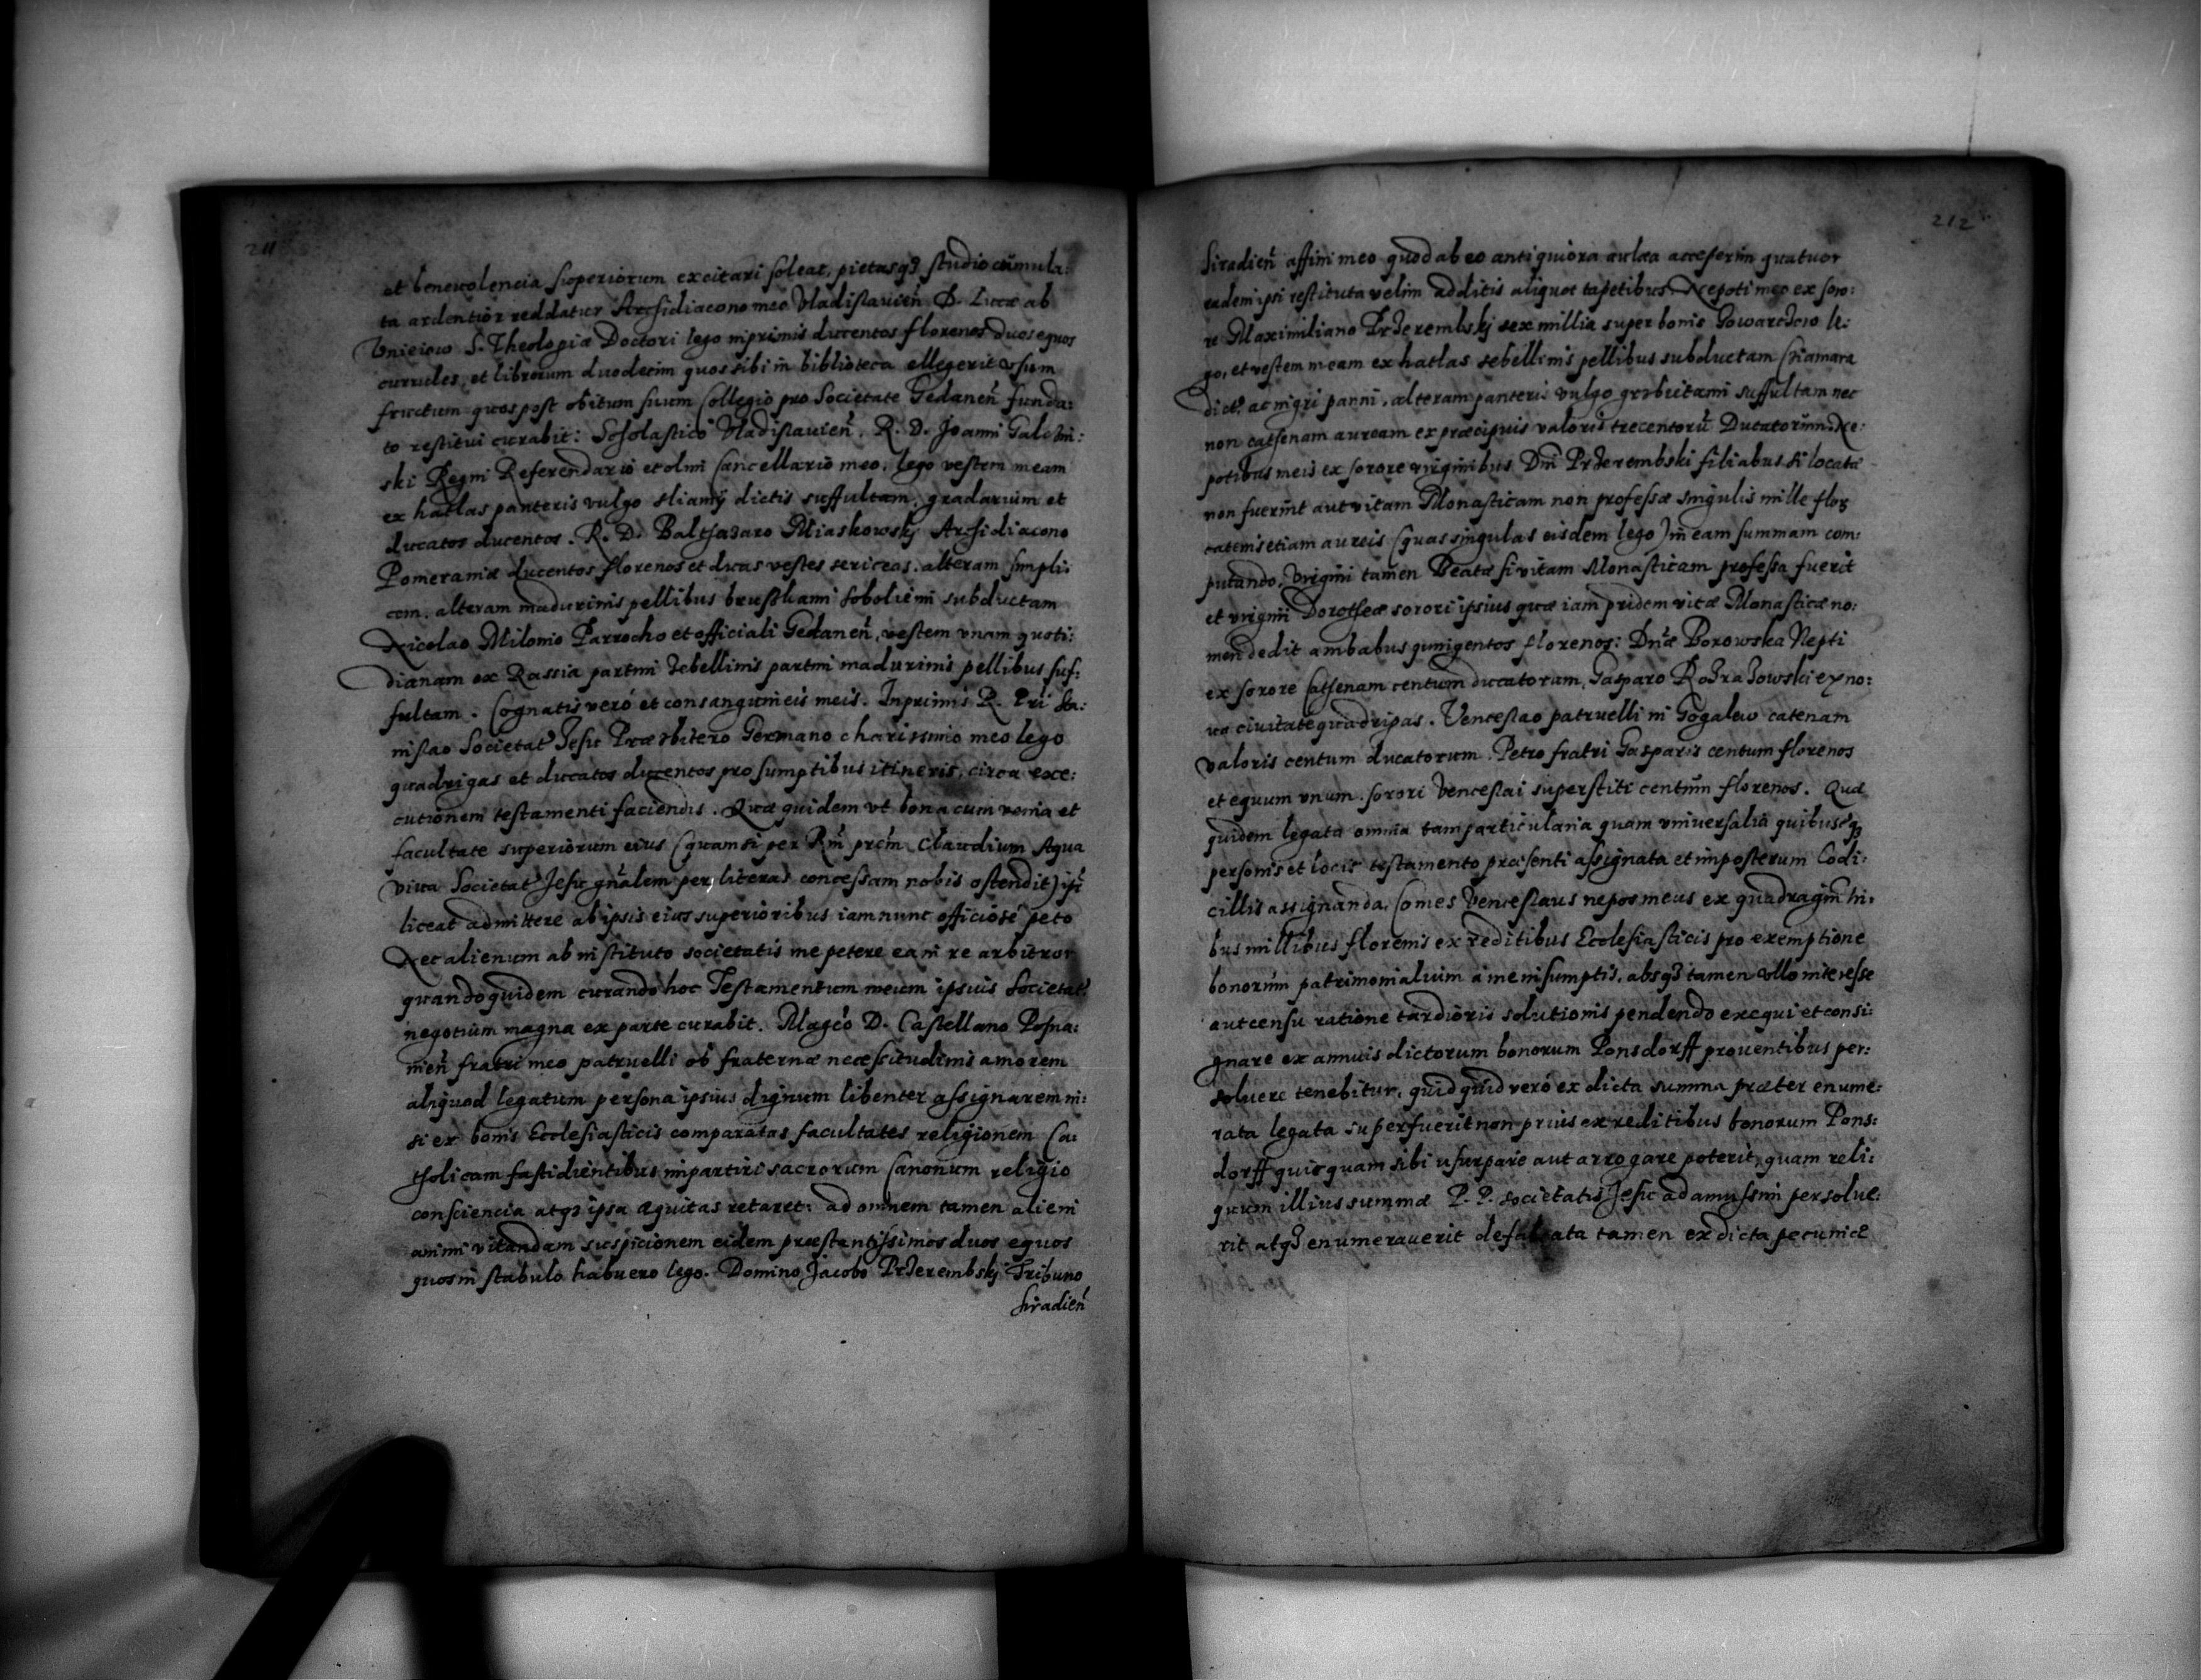 211
et beneuolencia superiorum excitari soleat, pietasq3 studio cumula:
ta ardentior reddatur Archidiacono meo Vladislauien̄ D. Lucæ ab
Vnieiow S. Theologiæ Doctori lego inprimis ducentos florenos duos equos
currules, et librorum duodecim quos sibi in biblioteca ellegerit vsum
fructum quos post obitum suum Collegio pro Societate Gedanen̄ funda:
to restitui curabit: Scholastico Vladislauien̄. R. D. Joanni Galczin:
ski Regni Referendario et olim Cancellario meo, lego vestem meam
ex hatlas panteris vulgo sliamÿ dictis suffultam, gradarium et
ducatos ducentos. R. D. Balthazaro Miaskowskj Archidiacono
Pomeraniæ ducentos florenos et duas vestes sericeas, alteram simpli:
cem, alteram madurinis pellibus brushami soboliemi subductam
Nicolao Milonio Parrocho et officiali Gedanen̄, vestem vnam quoti:
dianam ex Rassia partim zebellinis partim madurinis pellibus suf:
fultam. Cognatis veró et consanguineis meis. Inprimis R. Pri Sta:
nislao Societat Jesu Præsbitero Germano charissimo meo lego
quadrigas et ducatos ducentos pro sumptibus itineris, circa exe:
cutionem testamenti faciendis. Quæ quidem vt bona cum venia et
facultate superiorum eius (quam si per Rm̄ prēm Claudium Aqua
viua Societat Jesu gn̄alem per literas concessam nobis ostendit) ipi
liceat admittere ab ipsis eius superioribus iam nunc officiosé peto
Nec alienum ab instituto societatis me petere ea in re arbitror
quandoquidem curando hoc Testamentum meum ipsius Societat
negotium magna ex parte curabit. Magco D. Castellano Posna:
nien̄ fratri meo patruelli ob fraternæ necessitudinis amorem
aliquod legatum persona ipsius dignum libenter assignarem ni:
si ex bonis Ecclesiasticis comparatas facultates religionem Ca:
tholicam fastidientibus impartiri sacrorum Canonum religio
consciencia atq3 ipsa æquitas retaret: ad omnem tamen alieni
animi vitandam suspicionem eidem præstantissimos duos equos
quos in stabulo habuero lego. Domino Jacobo Przerembskj Tribuno
siradien̄
212
Siradien̄ affini meo quod ab eo antiquiora aulæa acceperim quatuor
eadem ipsi restituta velim additis aliquot tapetibus. Nepoti meo ex soro:
re Maximiliano Przerembskj sex millia super bonis Gowarczewo le:
go, et vestem meam ex hatlas sebellinis pellibus subductam Cziamara
dict. ac nigri panni, alteram panteris vulgo grzbietami suffultam nec
non cathenam auream ex præcipuis valoris trecentorū Ducatorum. Ne:
potibus meis ex sorore virginibus Dn̄i Przerembski filiabus si locatæ
non fuerint aut vitam Monasticam non professæ singulis mille flor
catenis etiam aureis (quas singulas eisdem lego) in eam summam com:
putando. Virgini tamen Beatæ si vitam Monasticam professa fuerit
et virgini Dorotheæ sorori ipsius quæ iam pridem vitæ Monasticæ no:
men dedit ambabus quingentos florenos: Dn̄æ Borowska Nepti
ex sorore Cathenam centum ducatorum, Gasparo Rozrazowski ex no:
ua ciuitate quadrigas. Venceslao patruelli in Gogalew catenam
valoris centum ducatorum. Petro fratri Gasparis centum florenos
et equum vnum. sorori Venceslai superstiti centum florenos. Quæ
quidem legata omnia tam particularia quam vniuersalia quibuscq3
personis et locis testamento præsenti assignata et imposterum Codi:
cillis assignanda, Comes Venceslaus nepos meus ex quadragin̄ hi:
bus millibus florenis ex reditibus Ecclesiasticis pro exemptione
bonorum patrimonialium á me insumptis, absq3 tamen vllo interesse
aut censu ratione tardioris solutionis pendendo exequi et consi:
gnare ex annuis dictorum bonorum Ponsdorff prouentibus per:
soluere tenebitur, quidquid veró ex dicta summa præter enume:
rata legata superfuerit non prius ex reditibus bonorum Pons:
dorff quicquam sibi usurpare aut arrogare poterit, quam reli:
quum illius summæ P. P. societatis Jesu ad amussim persolue:
rit atq3 enumerauerit tamen ex dicta pecuniæ